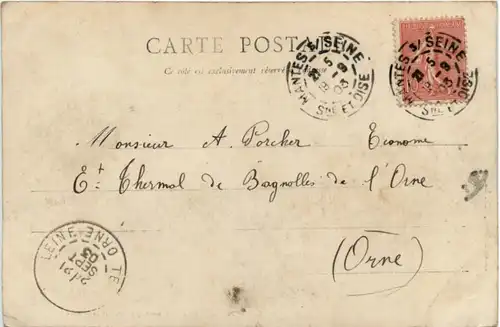 CARTE POSTALE
Ce côté est exclusivement réservé à l'adresse
MANTES S/ SEINE
5 -9
03
SNE ET OISE
MANTES S/ SEINE
5 -9
03
SNE ET OISE
Monsieur A. Porcher Econome
Et Thermal de Bagnolles de l'Orne
(Orne)
ORNE
SEPT
03